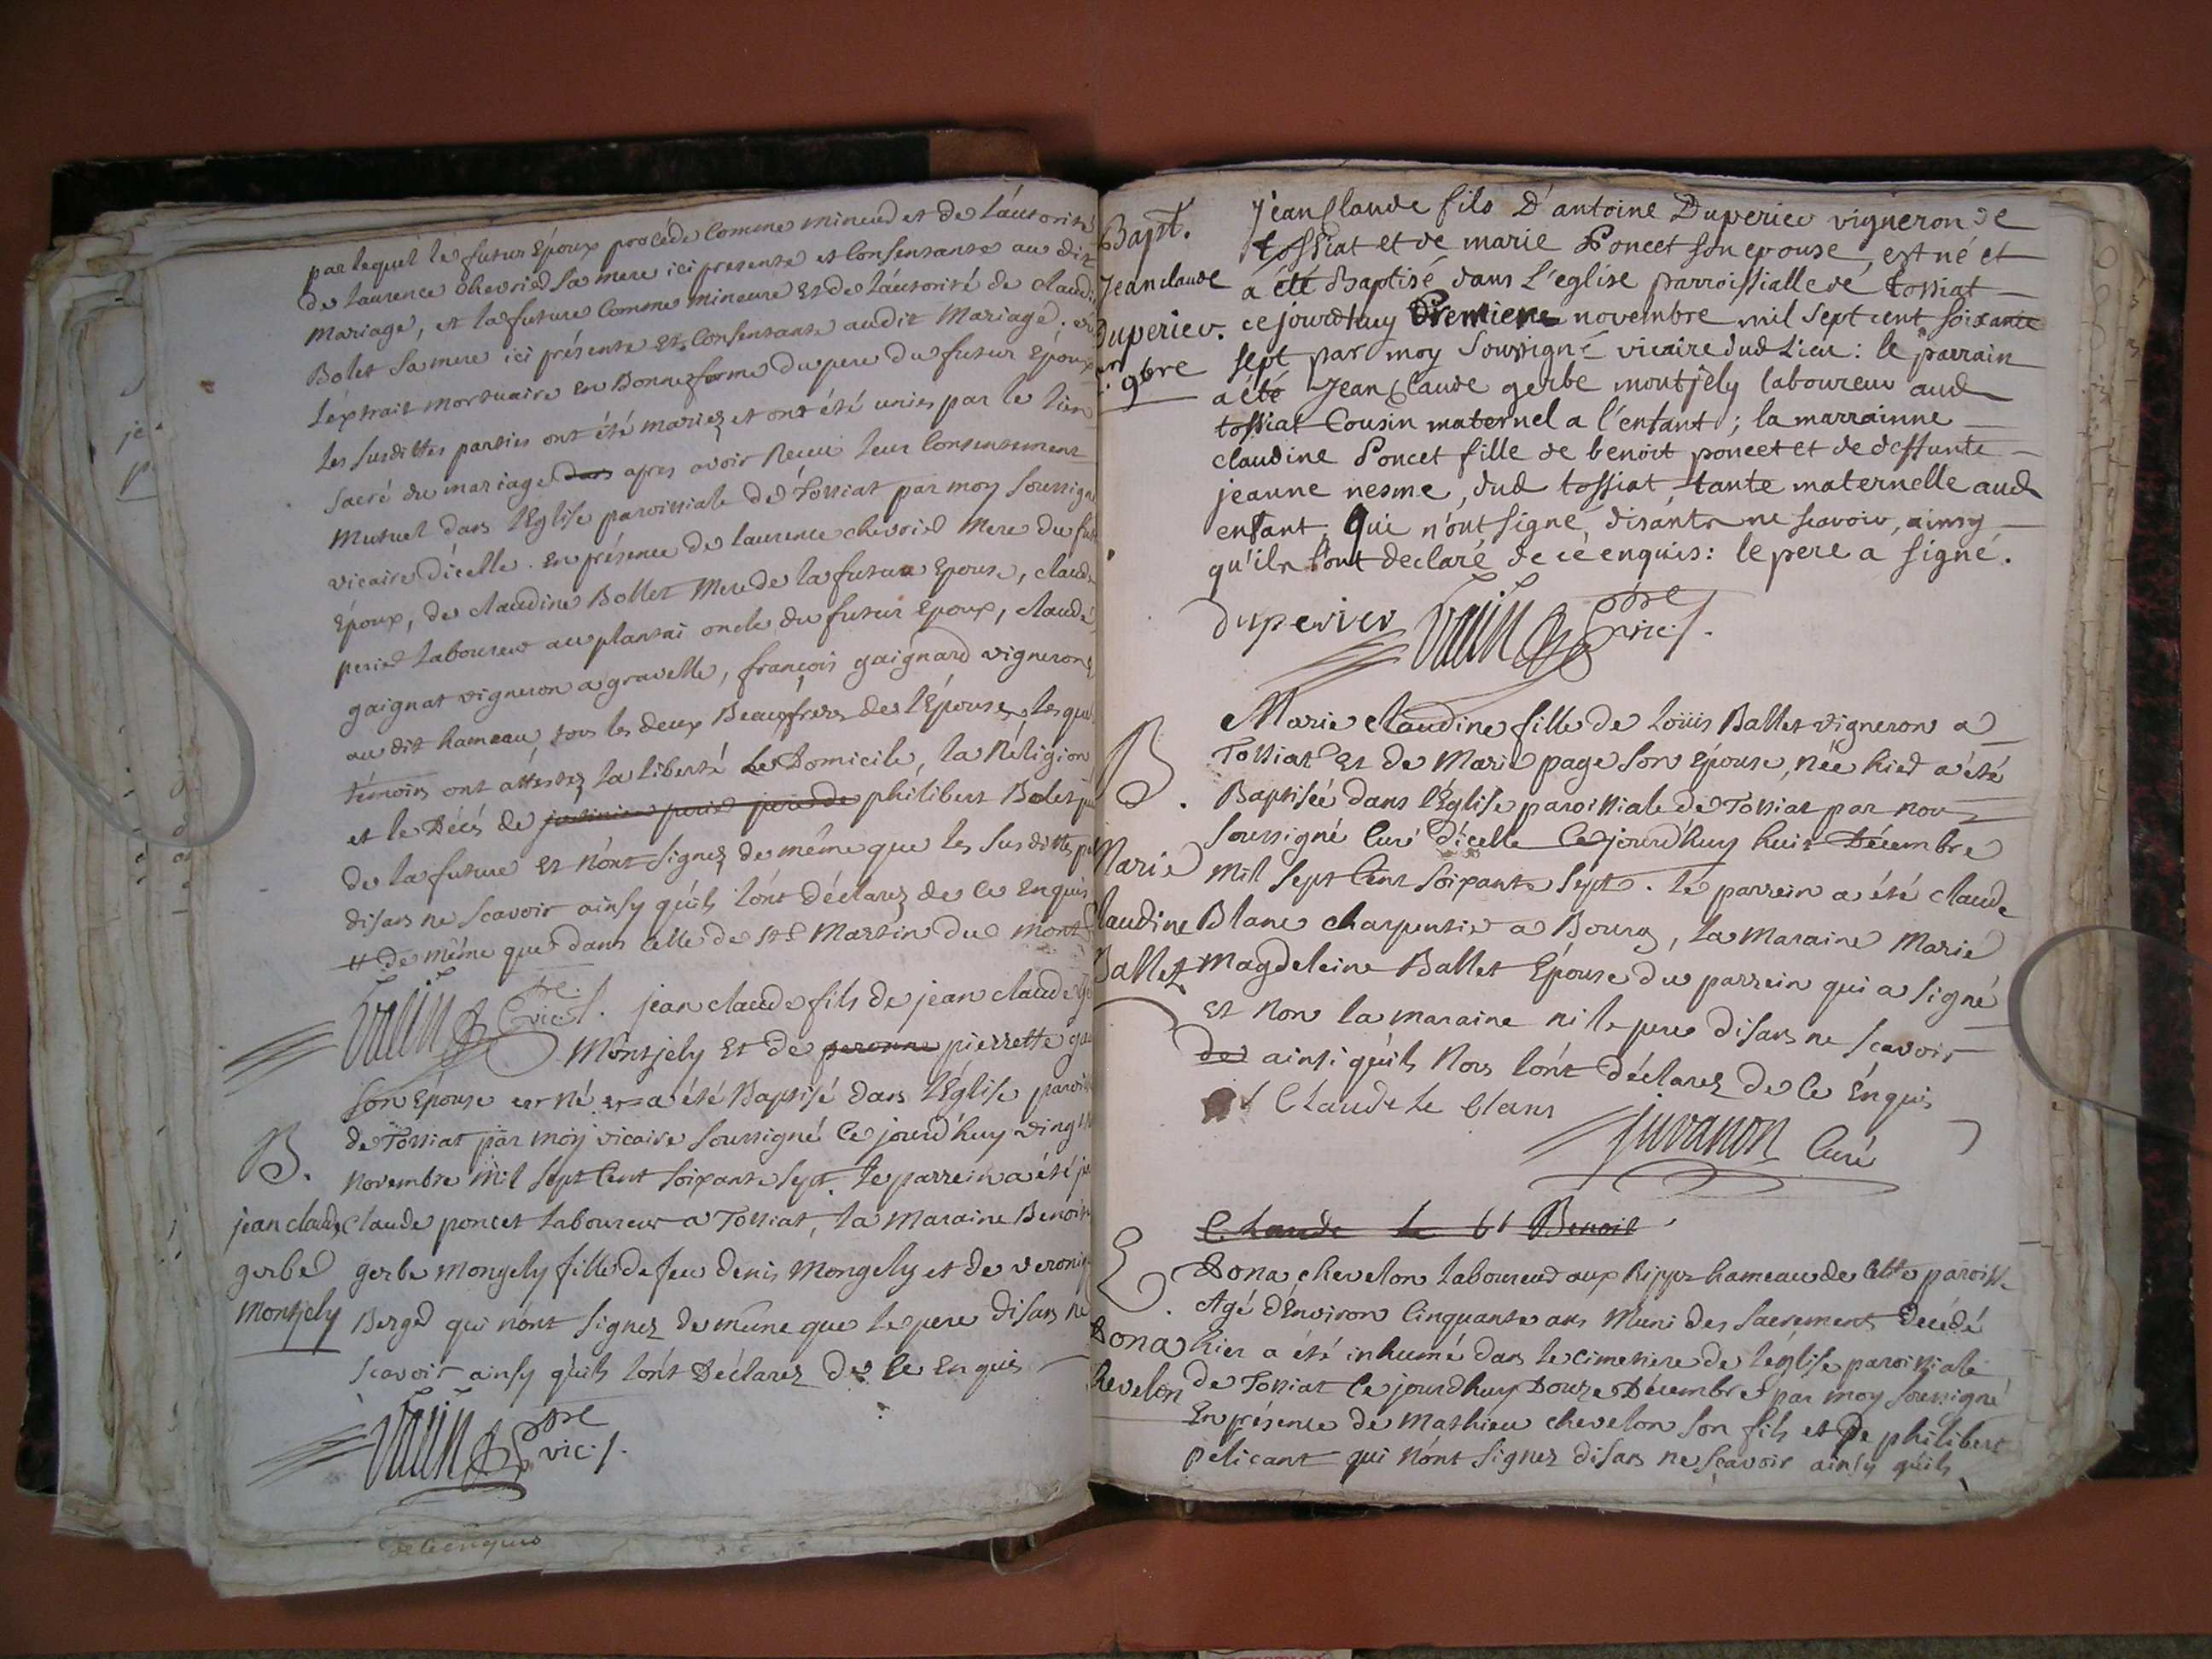 par lequel le futur Epoux procéde Comme mineur et de l'autorité
de laurence chevrier sa mere ici presente et Consentante au dit
Mariage, et la future Comme mineure et de l'autorité de claudine
Bolet sa mere ici présente et Consentante audit Mariage.
l'éxtrait mortuaire en Bonne forme du pere du futur Epoux
les susdittes parties ont été mariez et ont été unies par le lien
sacré du mariage dans apres avoir Receu leur Consentement
Mutuel dans l'Eglise paroissiale de Tossiat par moy soussigné
vicaire d'icelle. En présence de laurence chevrier Mere du futur
Epoux, de claudine Bollet Mere de la future Epouse, claude
perier laboureur au plantai oncle du futur Epoux, claude
gaignat vigneron a gravelle, françois gaignard vigneron
au dit hameau, tous les deux Beauxfreres de l'Epouse, lesquels
témoins ont attestez la liberté le Domicile, la Réligion
et le Décés de philibert Bolet
de la future et n'ont signez de même que les susdittes
disans ne scavoir ainsy qu'ils l'ont déclarez de ce Enquis
# de même que dans celle de st Martin du mont
Vallin ptre vic.
jean claude fils de jean claude
Montjely et de peronne pierrette
son Epouse est né et a été Baptisé dans l'Eglise
B. de Tossiat par moy vicaire soussigné ce jourd'huy vingt
Novembre Mil sept Cent soixante sept. le parrein a été
jean claude claude poncet laboureur a Tossiat, la Maraine Benoite
gerbe gerbe Mongely fille de feu denis Mongely et de veronique
Montjely Berger qui n'ont signez de même que le pere disans ne
scavoir ainsy qu'ils l'ont Déclarez de ce Enquis
Vallin ptre vic.
de ce enquis
Bapt. jean Claude fils D'antoine Duperier vigneron de
tossiat et de marie Poncet son epouse, est né et
Jean claude a été Baptisé dans l'eglise parroissialle de tossiat
duperier. ce jourdhuy Premiere novembre mil sept cent soixante
1er 9bre sept par moy soussigné vicaire dud lieu: le parrain
a été Jean Claude gerbe montjely laboureur aud
tossiat Cousin maternel a l'enfant; la marrainne
claudine Poncet fille de benoit poncet et de deffunte
jeanne nesme, dud tossiat tante maternelle aud
enfant, Qui n'ont signé, disants ne scavoir, ainsy
qu'ils l'ont declaré de ce enquis: le pere a signé.
duperier Vallin ptre vic.
Marie claudine fille de loüis Ballet vigneron a
B. Tossiat et de Marie page son Epouse, née hier a été
Baptisée dans l'Eglise paroissiale de Tossiat par nous
soussigné Curé d'icelle Ce jourd'huy huit Décembre
Marie Mil sept Cent soixante sept. le parrein a été claude
Claudine Blanc charpentier a Bourg, la Maraine Marie
Ballet Magdeleine Ballet Epouse du parrein qui a signé
et Non la maraine ni le pere disans ne scavoir
de ainsi qu'ils Nous l'ont déclarez de ce Enquis
Claude le blanc
juvanon Curé
Claude le bl Benoit
E. Dona chevelon laboureur aux Rippes hameau de cette paroisse
Agé d'Environ Cinquante ans Muni des sacrements décédé
Dona hier a été inhumé dans le cimetiere de l'église paroissiale
chevelon de Tossiat ce jourdhuy Douze Décembre par moy soussigné
En présence de Mathieu chevelon son fils et De philibert
pelicant qui N'ont signez disans ne sçavoir ainsy qu'ils